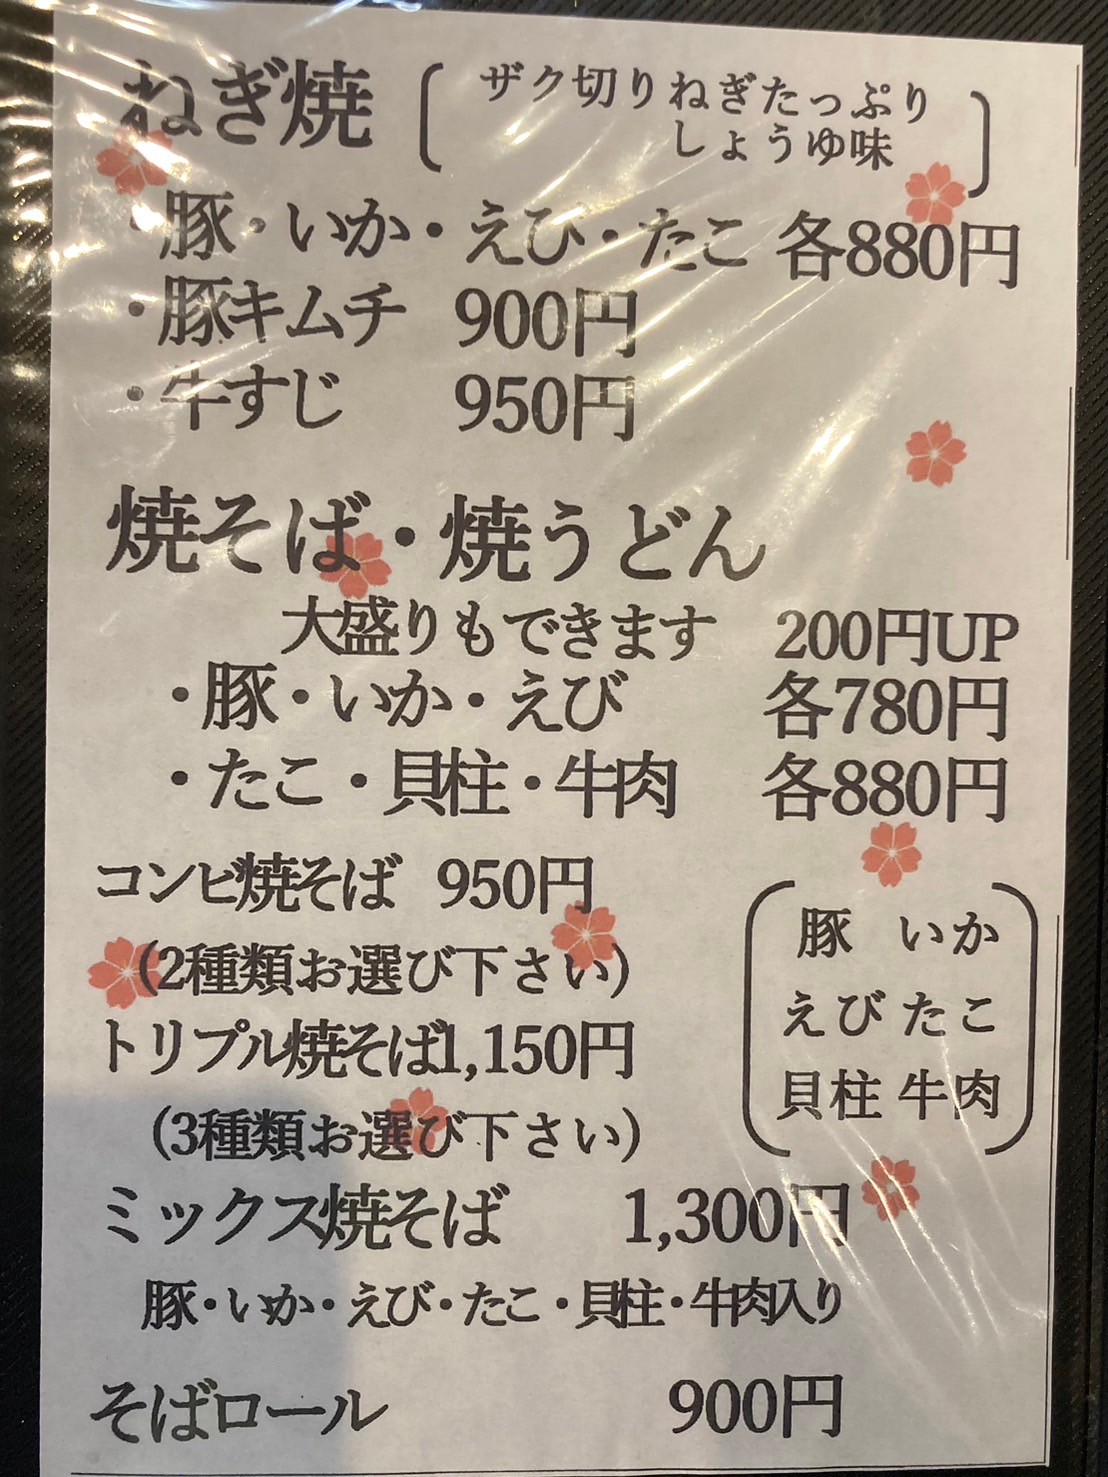 ねぎ焼 (ザク切りねぎたっぷり
しょうゆ味)
・豚・いか・えび・たこ 各880円
・豚キムチ 900円
・牛すじ 950円
焼そば・焼うどん
大盛りもできます 200円UP
・豚・いか・えび 各780円
・たこ・貝柱・牛肉 各880円
コンビ焼そば 950円
(2種類お選び下さい)
トリプル焼そば1,150円
(3種類お選び下さい)
(豚 いか
えび たこ
貝柱 牛肉)
ミックス焼そば 1,300円
豚・いか・えび・たこ・貝柱・牛肉入り
そばロール 900円